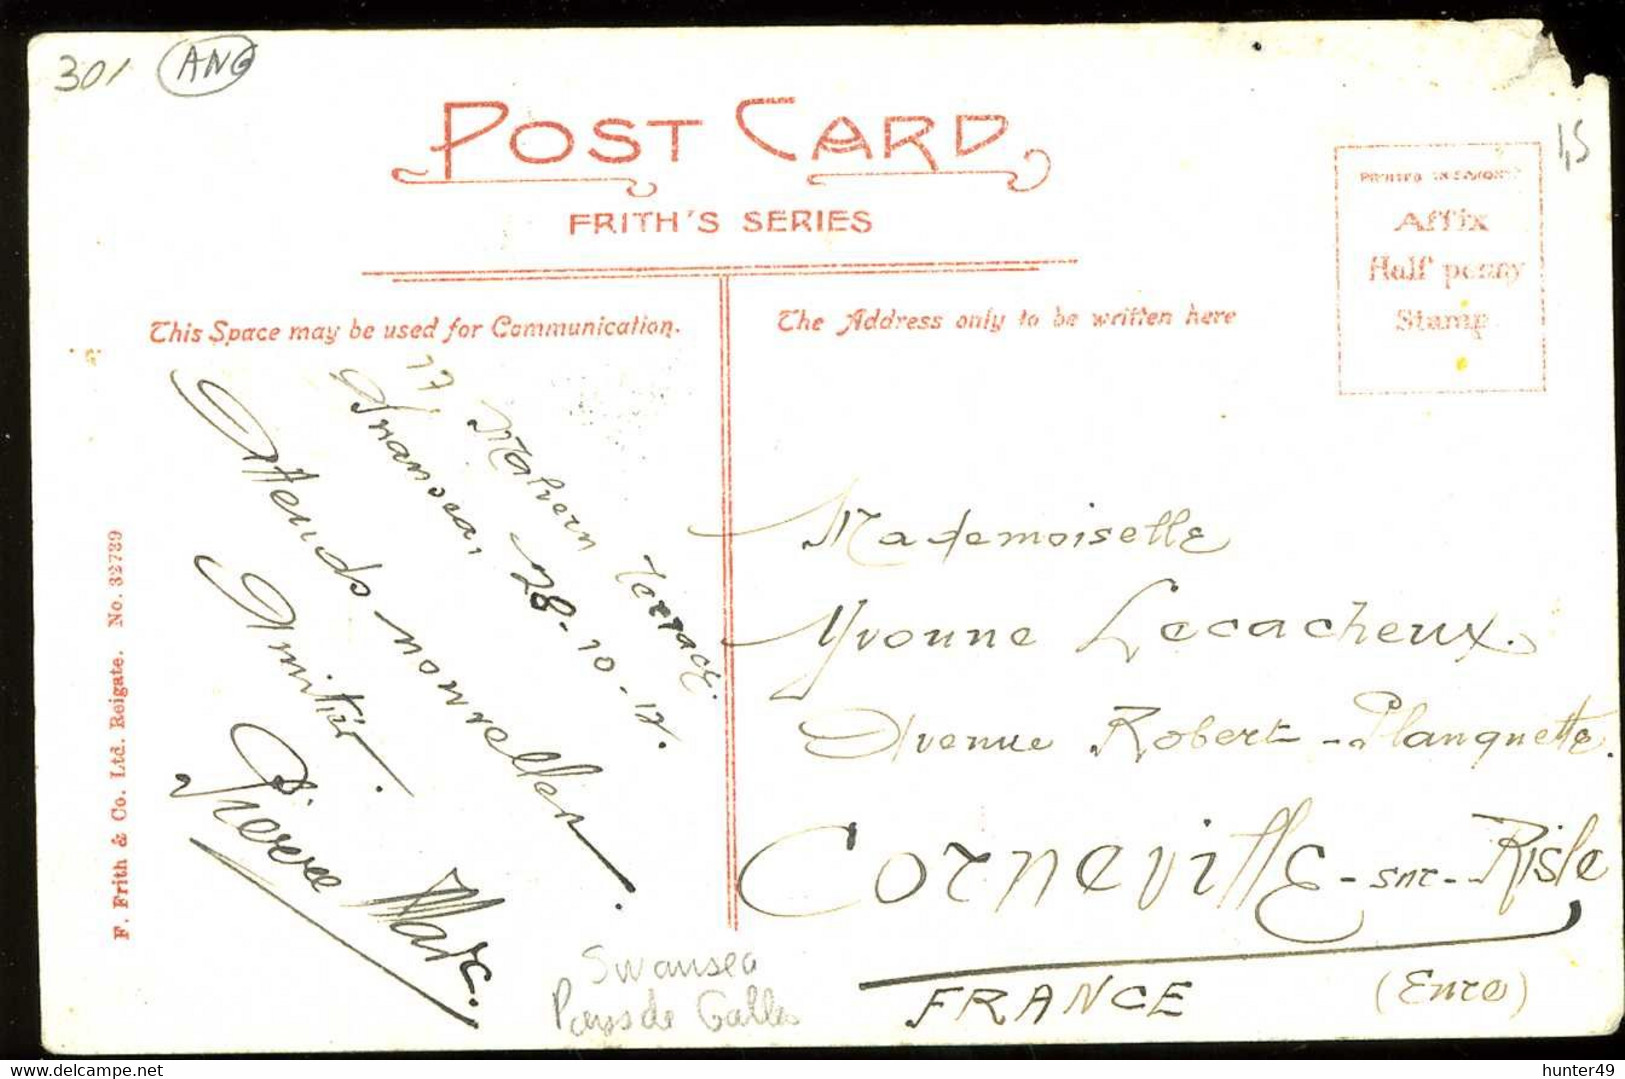 301 ANG
POST CARD
FRITH'S SERIES
1,5
PRINTED IN SAXONY
Affix
Half penny
Stamp
This Space may be used for Communication.
The Address only to be written here
17, Malvern Terrace.
Swansea, 28-10-17.
Attends nouvelles.
Amitiés.
Pierre Marc.
Mademoiselle
Yvonne Lecacheux.
Avenue Robert-Planquette.
Corneville-sur-Risle
FRANCE (Eure)
F. Frith & Co. Ltd. Reigate. No. 32739
Swansea
Pays de Galles
hunter49